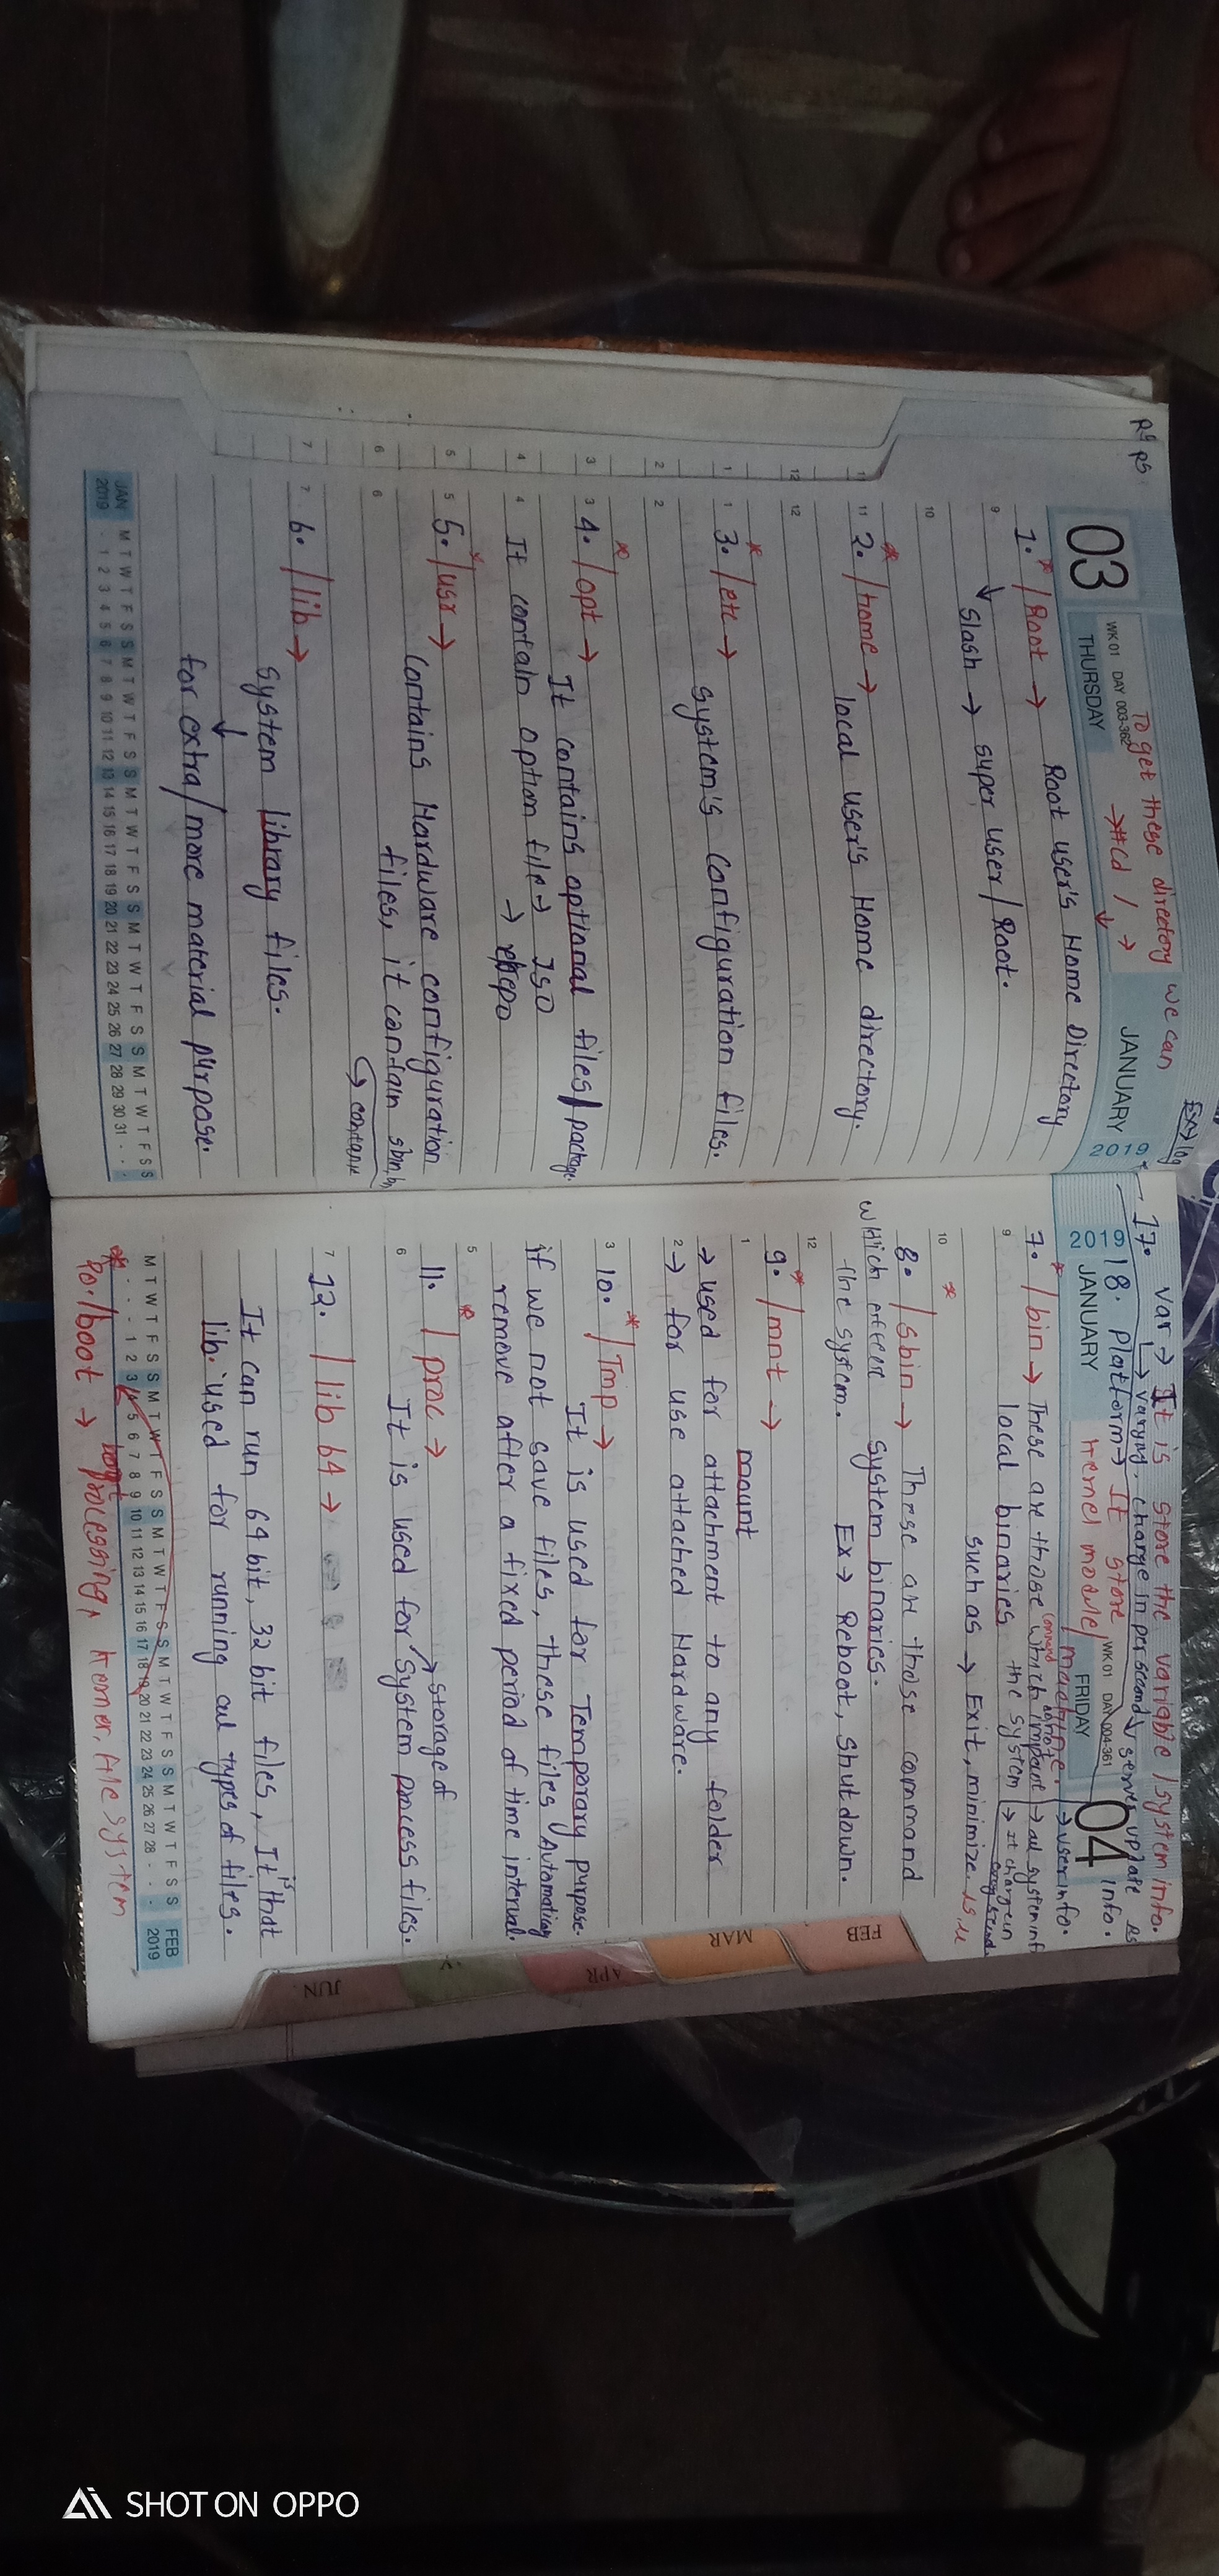 To get these directory we can
Ex→ log
→ #cd / →
03
WK 01 DAY 003-362
THURSDAY
JANUARY
2019
1. /Root → Root user's Home Directory
Slash → super user/Root.
2. /home → local user's Home directory.
3. /etc → System's configuration files.
4. /opt → It contains optional files/package.
It contain option file → ISO
→ repo
5. /usr → contains Hardware configuration
files, it contain sbin,
6. /lib →
System library files.
for extra/more material purpose.
JAN 2019
M T W T F S S M T W T F S S M T W T F S S M T W T F S S M T W T F S S
- 1 2 3 4 5 6 7 8 9 10 11 12 13 14 15 16 17 18 19 20 21 22 23 24 25 26 27 28 29 30 31 - - -
17. var → It is store the variable/system info.
→ varying, change in per second
18. Platform → It store server update info.
kernel module/machine. → user info.
2019
JANUARY
WK 01 DAY 004-361
FRIDAY
04
7. /bin → These are those which → all system inf
local binaries the system → it change in
every second
such as → Exit, minimize
8. /sbin → These are those command
which effect system binaries.
the system. Ex → Reboot, Shutdown.
9. /mnt →
mount
→ used for attachment to any folder
→ for use attached Hardware.
10. /Tmp →
It is used for Temporary purpose.
if we not save files, these files Automating
remove after a fixed period of time interval.
11. /proc → storage of
It is used for system process files.
12. /lib 64 →
It can run 64 bit, 32 bit files, It is that
lib. used for running all types of files.
M T W T F S S M T W T F S S M T W T F S S M T W T F S S M T W T F S S
- - - - 1 2 3 4 5 6 7 8 9 10 11 12 13 14 15 16 17 18 19 20 21 22 23 24 25 26 27 28 - - -
FEB 2019
/boot → boot processing, kerner, file system
FEB
MAR
APR
JUN
SHOT ON OPPO